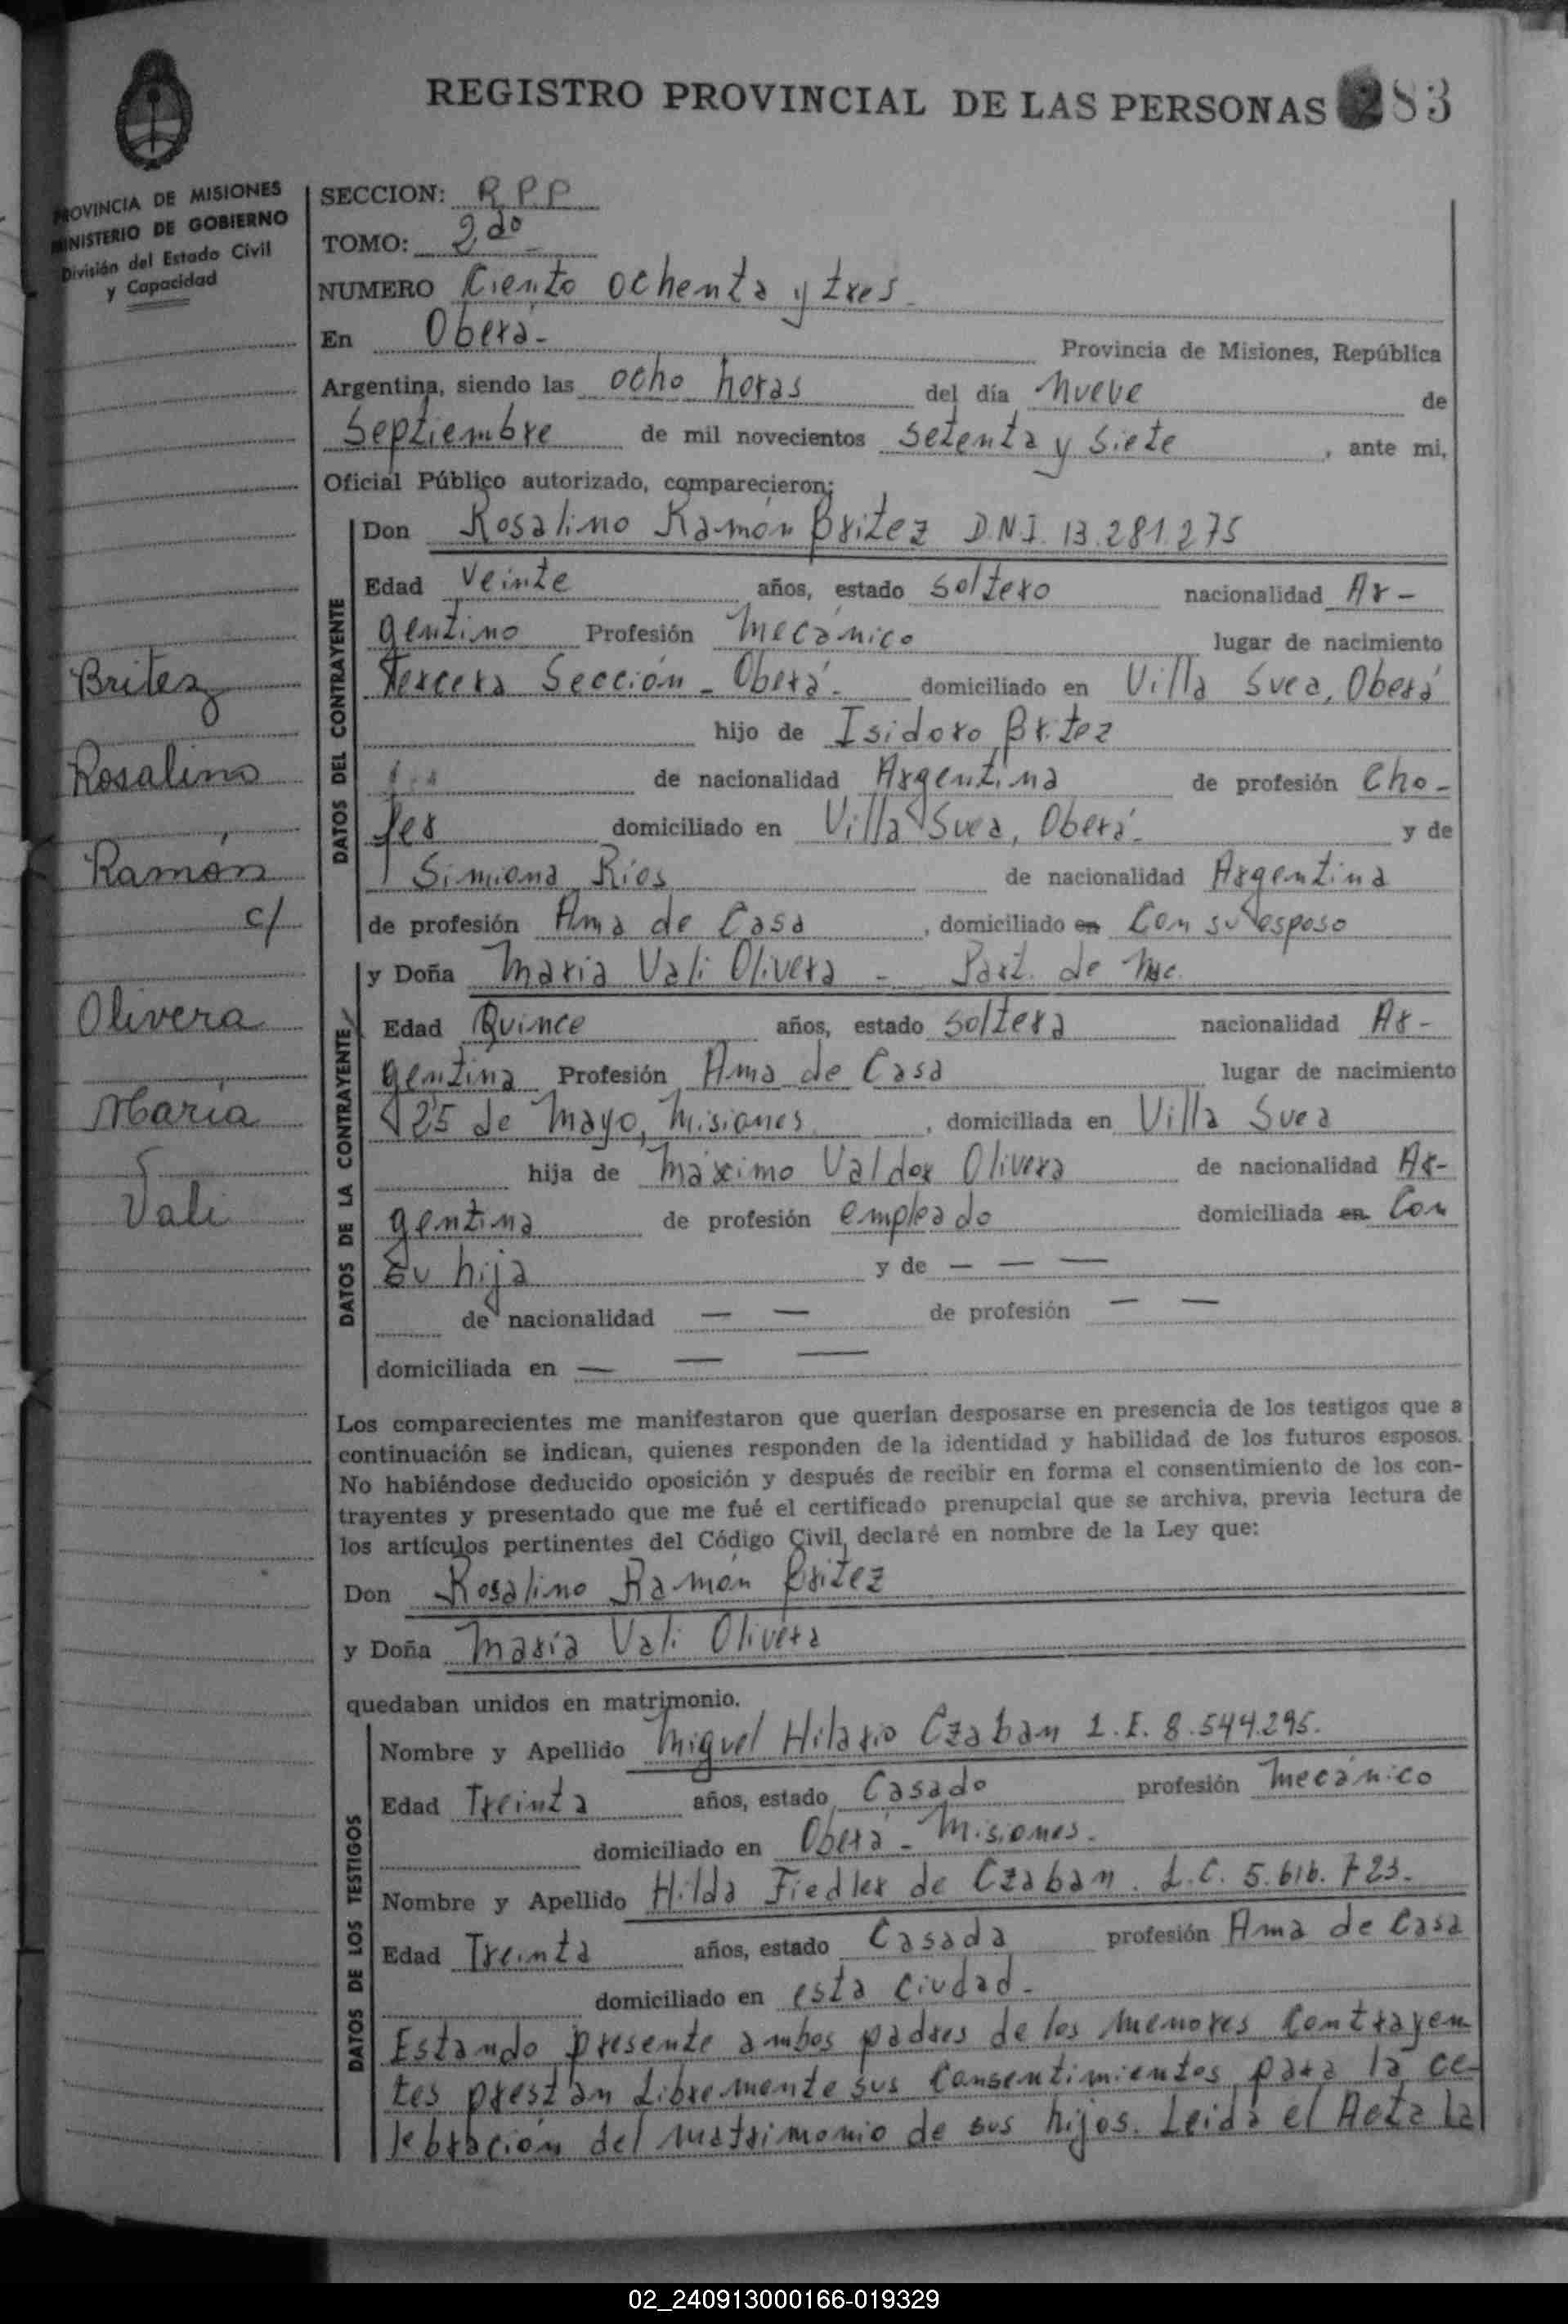 REGISTRO PROVINCIAL DE LAS PERSONAS 283
PROVINCIA DE MISIONES
MINISTERIO DE GOBIERNO
División del Estado Civil
y Capacidad
SECCION: R.P.P
TOMO: 2do
NUMERO Ciento ochenta y tres
En Oberá - Provincia de Misiones, República
Argentina, siendo las ocho horas del día nueve de
Septiembre de mil novecientos setenta y siete, ante mi,
Oficial Público autorizado, comparecieron:
DATOS DEL CONTRAYENTE
Don Rosalino Ramón Britez D.N.I. 13.281.275
Edad Veinte años, estado soltero nacionalidad Ar-
gentino Profesión Mecánico lugar de nacimiento
Tercera Sección - Oberá - domiciliado en Villa Svea, Oberá
hijo de Isidoro Britez
de nacionalidad Argentina de profesión Cho-
fer domiciliado en Villa Svea, Oberá - y de
Simiona Ríos de nacionalidad Argentina
de profesión Ama de Casa, domiciliado en Con su esposo
DATOS DE LA CONTRAYENTE
y Doña Maria Vali Olivera - Part. de Nac.
Edad Quince años, estado soltera nacionalidad Ar-
gentina Profesión Ama de Casa lugar de nacimiento
25 de Mayo, Misiones, domiciliada en Villa Svea
hija de Máximo Valdor Olivera de nacionalidad Ar-
gentina de profesión empleado domiciliada en Con
su hija y de — — —
de nacionalidad — — de profesión — —
domiciliada en — — —
Britez
Rosalino
Ramón
c/
Olivera
María
Vali
Los comparecientes me manifestaron que querían desposarse en presencia de los testigos que a
continuación se indican, quienes responden de la identidad y habilidad de los futuros esposos.
No habiéndose deducido oposición y después de recibir en forma el consentimiento de los con-
trayentes y presentado que me fué el certificado prenupcial que se archiva, previa lectura de
los artículos pertinentes del Código Civil, declaré en nombre de la Ley que:
Don Rosalino Ramón Britez
y Doña María Vali Olivera
quedaban unidos en matrimonio.
DATOS DE LOS TESTIGOS
Nombre y Apellido Miguel Hilario Czaban L.E. 8.544.295.
Edad Treinta años, estado Casado profesión Mecánico
domiciliado en Oberá - Misiones.
Nombre y Apellido Hilda Fiedler de Czaban. L.C. 5.616.723.
Edad Treinta años, estado Casada profesión Ama de Casa
domiciliado en esta Ciudad.
Estando presente ambos padres de los menores Contrayen
tes prestan Libremente sus Consentimientos para la ce-
lebración del matrimonio de sus hijos. Leida el Acta la
02_240913000166-019329